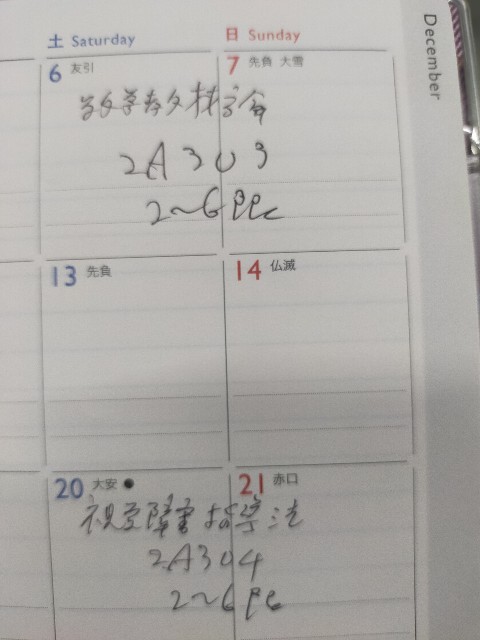 December
土 Saturday
日 Sunday
6 友引
7 先負 大雪
数学教材
2A309
2~6
13 先負
14 仏滅
20 大安 ●
21 赤口
視覚障害指導法
2A304
2~6